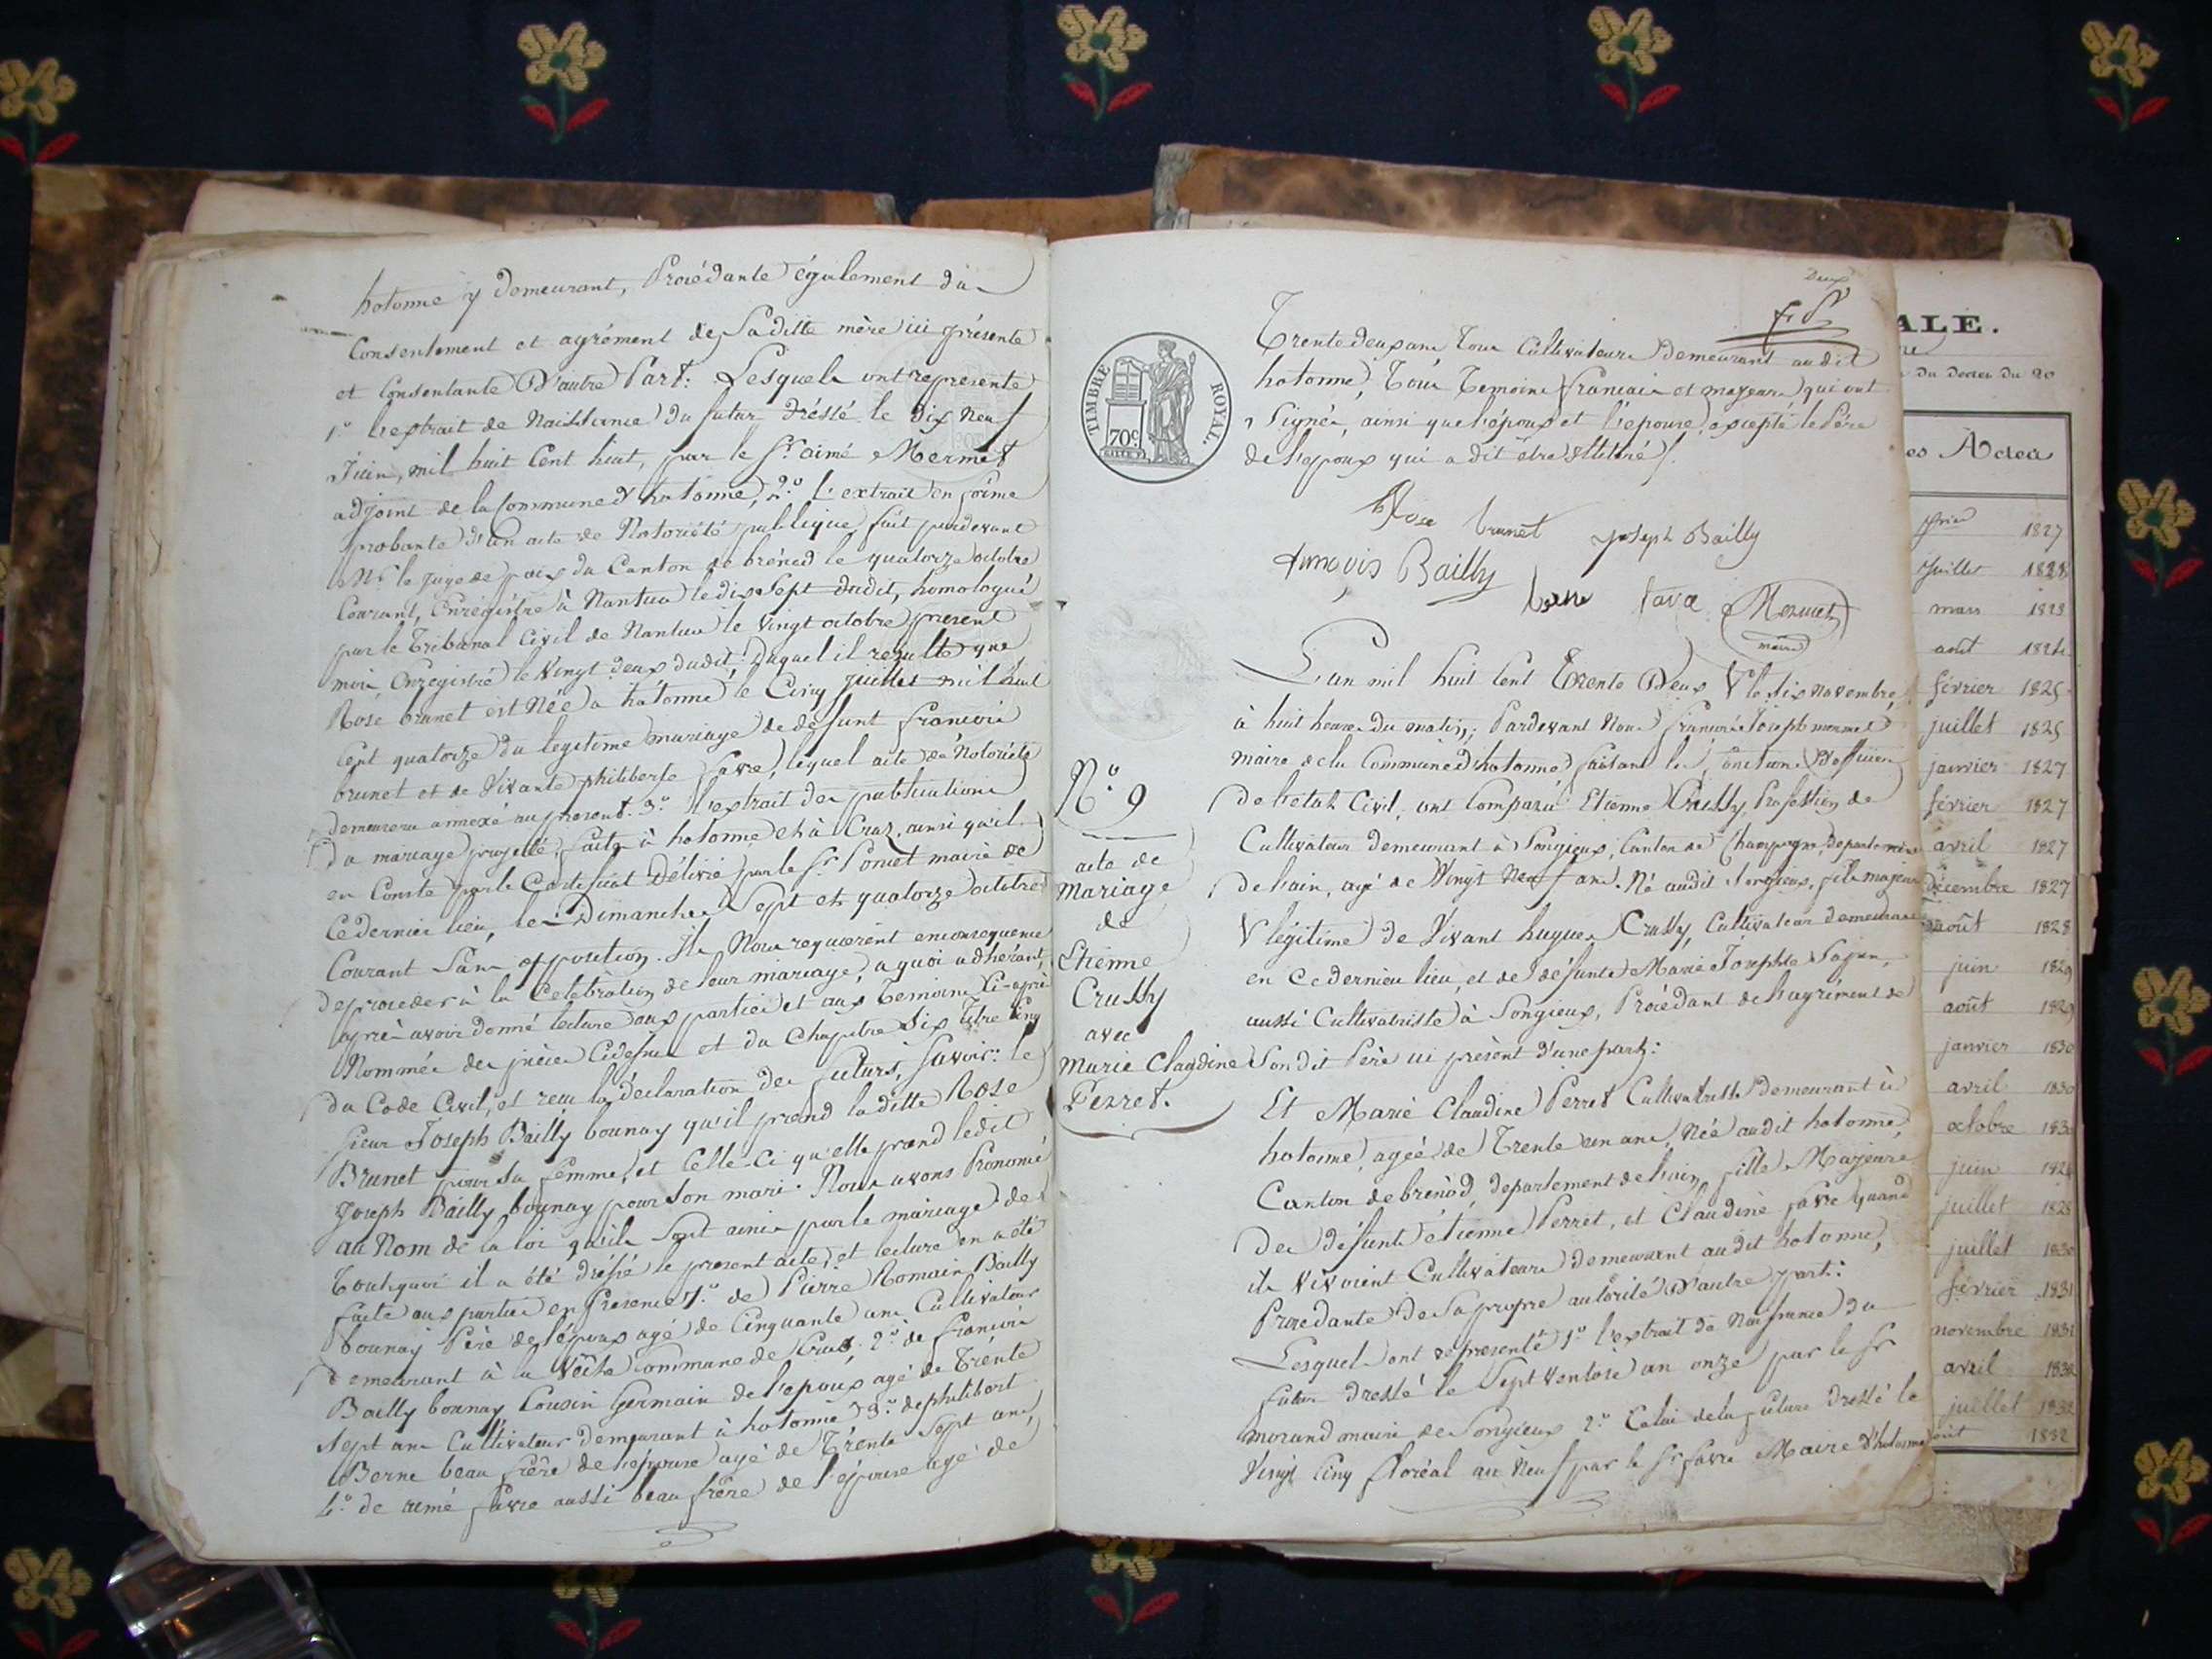 hotonne y demeurant, Procédante également du
Consentement et agrément de Saditte mère ici présente
et Consentante D'autre Part: Lesquels ont représenté
1º L'extrait de Naissance du futur dréssé le dix Neuf
Juin, mil huit Cent huit, par le Sr. aimé Mermet
adjoint de la Commune d'hotonne, 2º L'extrait en forme
probante d'un acte de Notoriété publique fait pardevant
Mr. le Juge de paix du Canton de brénod le quatorze octobre
Courant, Enregistré à Nantua le dix Sept dudit, homologué
par le Tribunal Civil de Nantua le Vingt octobre présent
mois, Enregistré le Vingt deux dudit; Duquel il resulte que
Rose brunet est Née a hotonne le Cinq juillet mil huit
Cent quatorze du legitime mariage de défunt francois
brunet et de Vivante philiberte favre, lequel acte de Notoriété
demeurera annexé au present. 3º L'extrait des publications
du mariage projetté, faites à hotonne et à Craz, ainsi qu'il
en Conste par le Certificat Délivré par le Sr. Poncet maire de
Ce dernier lieu, les Dimanches Sept et quatorze octobre
Courant Sans opposition. Ils Nous requierent en consequence
de proceder à la Celebration de leur mariage, a quoi adhérant,
après avoir donné lecture aux parties et aux Temoins Ci-après
Nommés des pièces Cidessus et du Chapitre Six titre Cinq
du Code Civil, et recu la déclaration des futurs, Savoir: le
Sieur Joseph Bailly bounay qu'il prend laditte Rose
Brunet pour Sa femme, et Celle-Ci qu'elle prend ledit
Joseph Bailly bounay pour Son mari. Nous avons Prononcé
au Nom de la loi qu'ils Sont unis par le mariage de
Tout quoi il a été dréssé le present acte, et lecture en a été
faite aux parties en Présence 1º de Pierre Romain Bailly
bounay Père de l'époux agé de Cinquante ans Cultivateur
demeurant à la Commune de Craz, 2º de francois
Bailly bounay Cousin Germain de l'epoux agé de Trente
Sept ans Cultivateur demeurant à hotonne 3º de philibert
Berne beau frère de l'épouse agé de Trente Sept ans,
4º de aimé favre aussi beau frère de l'épouse agé de
Deux
TIMBRE ROYAL.
70c
Trente deux ans Tous Cultivateurs Demeurant audit
hotonne, Tous Temoins francais et majeurs qui ont
Signés, ainsi que l'époux et l'epouse, excepté le Père
de l'epoux qui a dit être illitéré.
Rose brunet joseph Bailly
francois Bailly
berne favre Mermet
maire
L'an mil huit Cent Trente Deux & le Six novembre,
à huit heures du matin; Pardevant Nous francois Joseph mermet
maire de la Commune d'hotonne faisant les fonctions D'officier
de l'etat Civil, ont Comparu Etienne Crussy Profession de
Cultivateur demeurant à Songieux, Canton de Champagne, departement
de l'ain, agé de Vingt Neuf ans. Né audit Songieux, fils majeur
& légitime de Vivant hugues Crussy, Cultivateur demeurant
en Ce dernier lieu, et de défunte Marie Josephte
aussi Cultivatrisse à Songieux, Procédant de l'agrément de
Son dit Père ici présent d'une part:
Et Marie Claudine Perret Cultivatrisse demeurant à
hotonne, agée de Trente un ans, Née audit hotonne,
Canton de brénod, departement de l'ain, fille Majeure
des défunts étienne Perret, et Claudine favre quand
ils Vivoient Cultivateurs demeurant audit hotonne,
Procedante de Sa propre autorité D'autre part:
Lesquels ont representé 1º L'extrait de Naissance du
futur dressé le Sept Ventose an onze par le Sr
morand maire de Songieux 2º Celui de la future dressé le
Vingt Cinq floréal an Neuf par le Sr favre Maire d'hotonne
Nº 9
acte de
Mariage
de
Etienne
Crussy
avec
Marie Claudine
Perret.
ALE.
du Decret du 20
es Actes
1827
Juillet 1828
mars 1823
août 1824
février 1825
juillet 1825
janvier 1827
février 1827
avril 1827
décembre 1827
août 1828
juin 1829
août 1829
janvier 1830
avril 1830
octobre 1830
juin
juillet 1828
juillet 1830
février 1831
novembre 1831
avril 1832
juillet 1832
août 1832